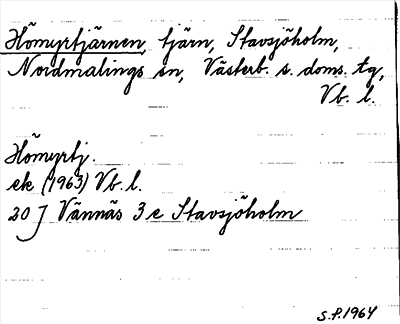 Hömyrtjärnen, tjärn, Stavsjöholm,
Nordmalings sn, Västerb. s. doms. tg,
Vb. l.
Hömyrtj.
ek (1963) Vb. l.
20 J Vännäs 3 e Stavsjöholm
S.P. 1964